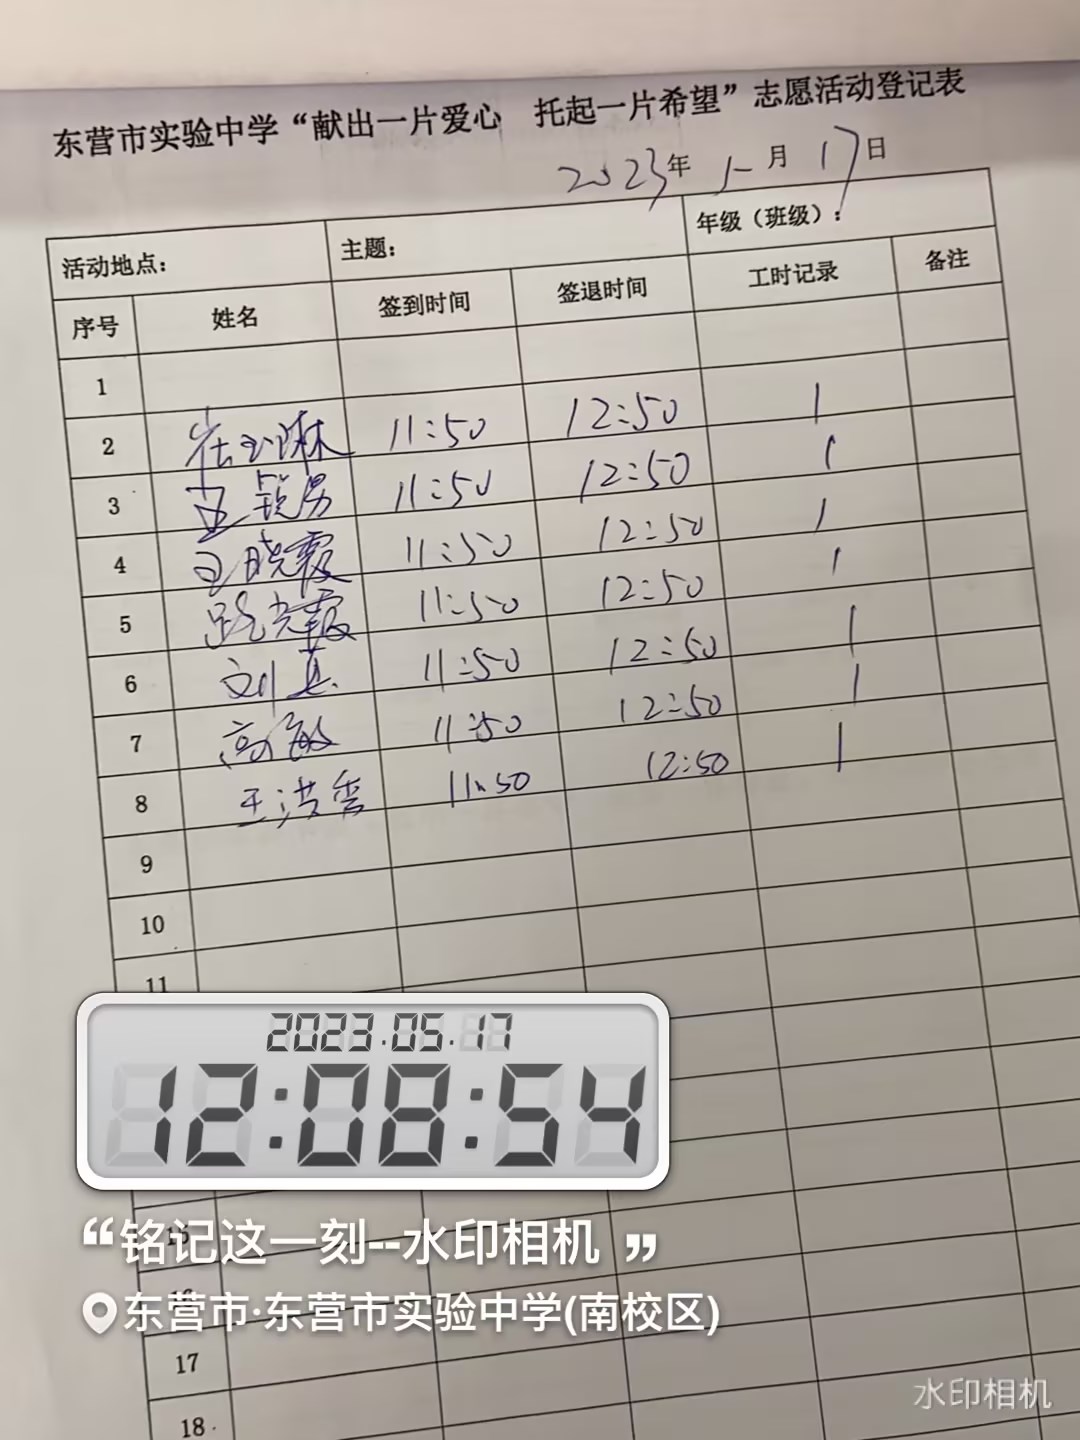 东营市实验中学“献出一片爱心 托起一片希望”志愿活动登记表
2023年 5月 17日
活动地点： 主题： 年级（班级）：
序号 姓名 签到时间 签退时间 工时记录 备注
1
2 崔玉琳 11:50 12:50 1
3 11:50 12:50 1
4 王晓霞 11:50 12:50 1
5 11:50 12:50 1
6 刘真 11:50 12:50 1
7 高敏 11:50 12:50 1
8 王洪雪 11:50 12:50 1
9
10
11
2023.05.17
12:08:54
15
“铭记这一刻--水印相机 ”
16
东营市·东营市实验中学(南校区)
17
水印相机
18